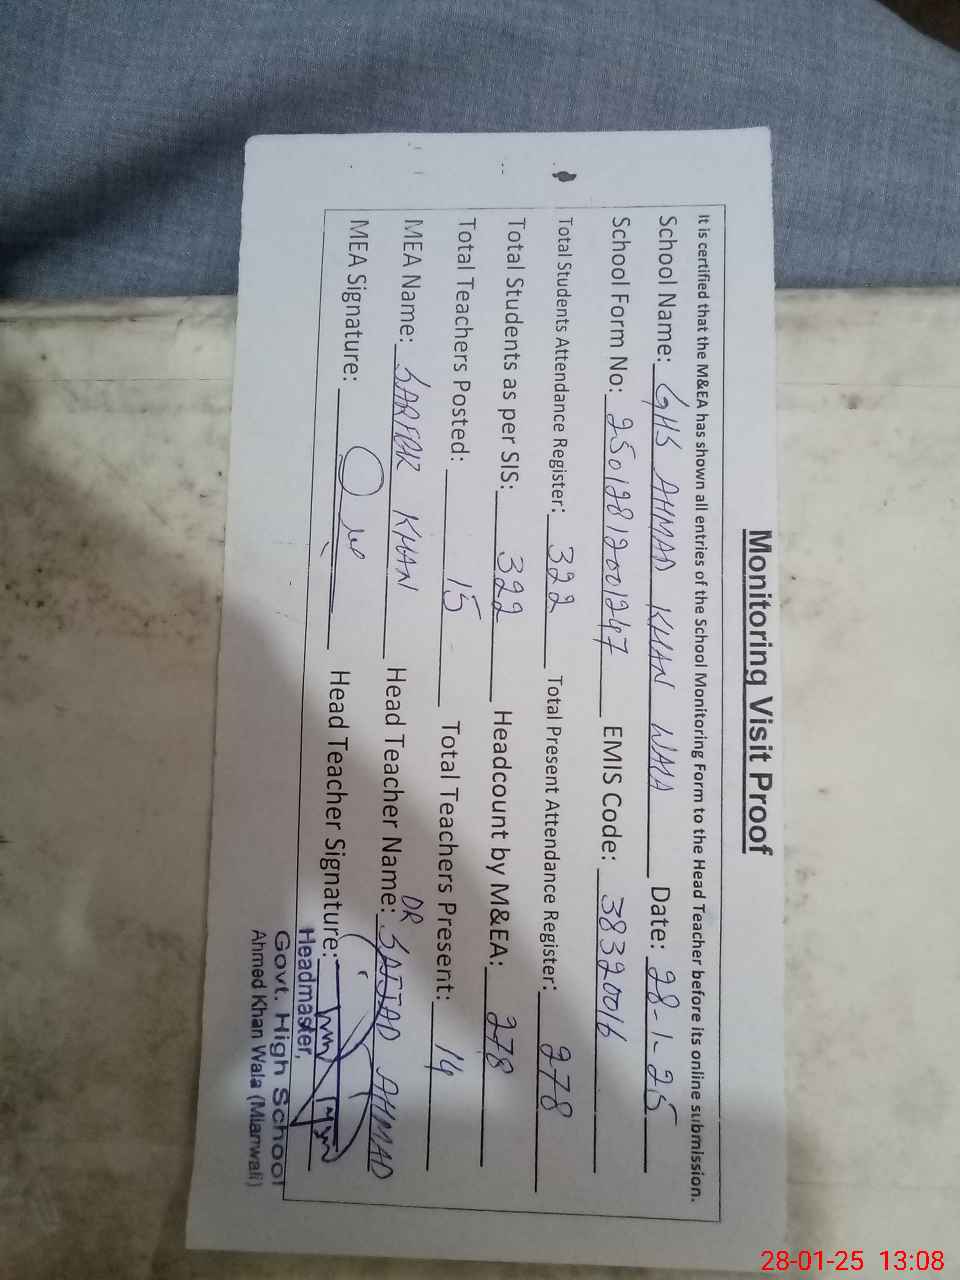 Monitoring Visit Proof
It is certified that the M&EA has shown all entries of the School Monitoring Form to the Head Teacher before its online submission.
School Name: GHS AHMAD KHAN WALA Date: 28-1-25
School Form No: 25012812001247 EMIS Code: 38320016
Total Students Attendance Register: 322 Total Present Attendance Register: 278
Total Students as per SIS: 322 Headcount by M&EA: 278
Total Teachers Posted: 15 Total Teachers Present: 14
MEA Name: KHAN Head Teacher Name: DR SAJJAD AHMAD
MEA Signature: Head Teacher Signature:
Headmaster,
Govt. High School
Ahmed Khan Wala (Mianwali)
28-01-25 13:08